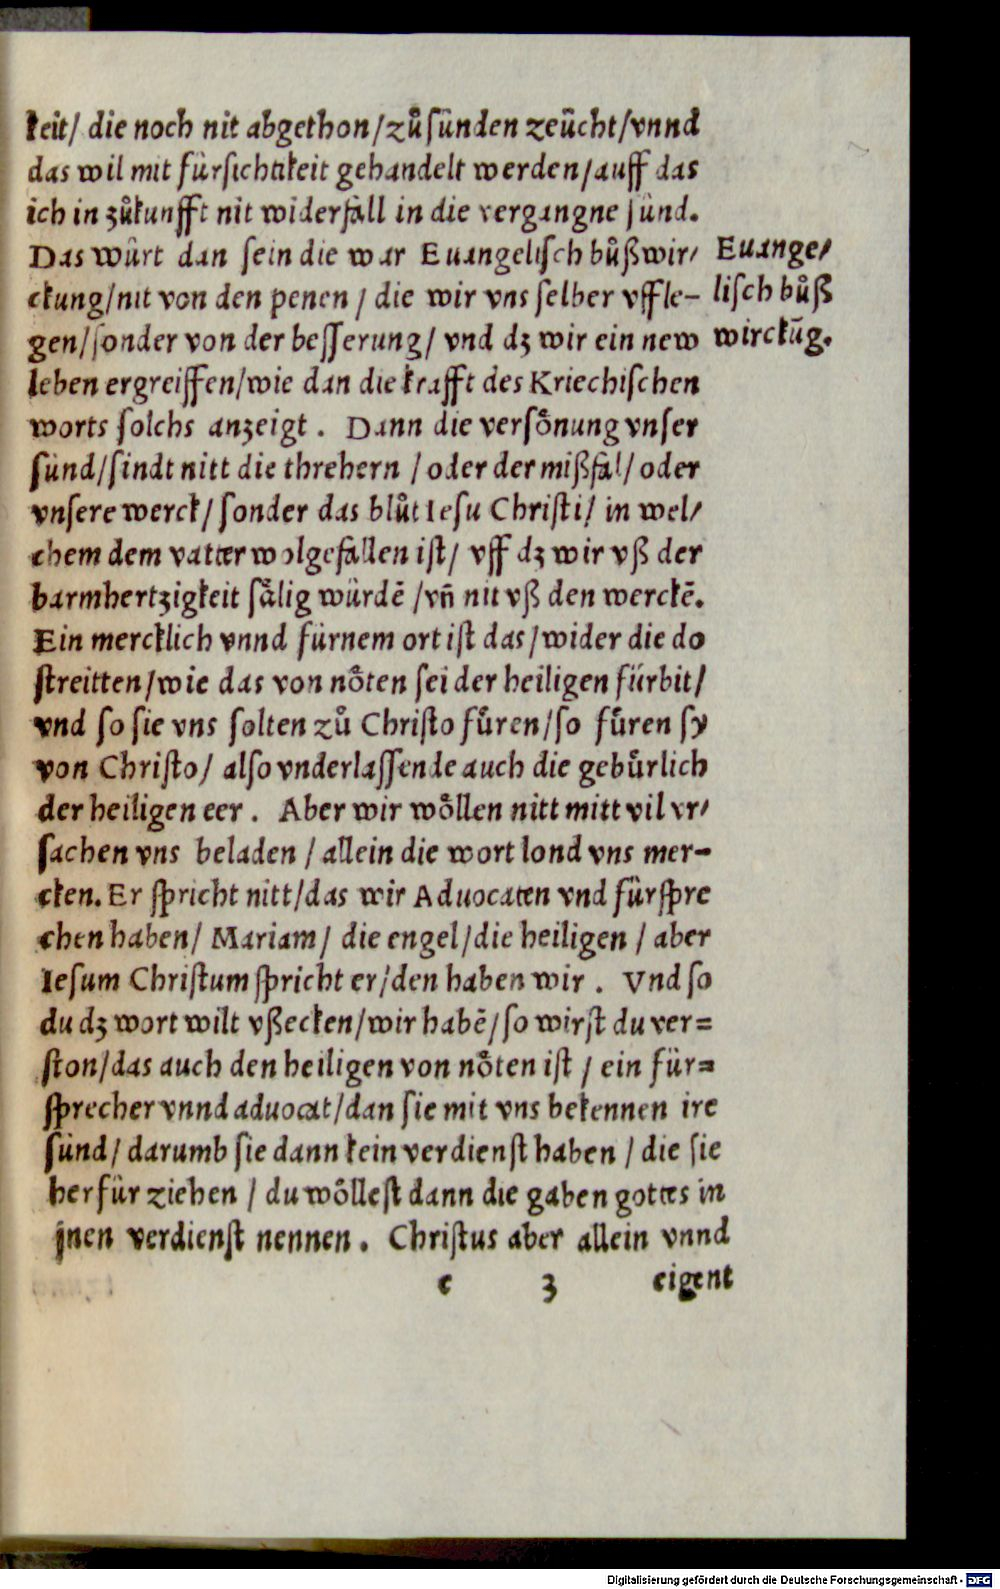 keit/ die noch nit abgethon/zuͦ sünden zeücht/vnnd
das wil mit fürsichtikeit gehandelt werden/auff das
ich in zuͦkunfft nit widerfall in die vergangne sünd.
Das würt dan sein die war Euangelisch buͦßwir/
ckung/nit von den penen / die wir vns selber vffle-
gen/sonder von der besserung/ vnd dz wir ein new
leben ergreiffen/wie dan die krafft des Kriechischen
worts solchs anzeigt . Dann die versoͤnung vnser
sünd/sindt nitt die threhern /oder der mißfal/oder
vnsere werck/ sonder das bluͦt Iesu Christi/ in wel/
chem dem vatter wolgefallen ist/ vff dz wir vß der
barmhertzigkeit saͤlig würdē /vn̄ nit vß den werckē.
Ein mercklich vnnd fürnem ort ist das/wider die do
streitten/wie das von noͤten sei der heiligen fürbit/
vnd so sie vns solten zuͦ Christo fuͤren/so fuͤren sy
von Christo/ also vnderlassende auch die gebuͤrlich
der heiligen eer . Aber wir woͤllen nitt mitt vil vr/
sachen vns beladen / allein die wort lond vns mer-
cken. Er spricht nitt/das wir Aduocaten vnd fürspre
chen haben/ Mariam/ die engel/die heiligen / aber
Iesum Christum spricht er/den haben wir . Vnd so
du dz wort wilt vßecken/wir habē/so wirst du ver=
ston/das auch den heiligen von noͤten ist / ein für=
sprecher vnnd aduocat/dan sie mit vns bekennen ire
sünd/ darumb sie dann kein verdienst haben / die sie
herfür ziehen / du woͤllest dann die gaben gottes in
jnen verdienst nennen . Christus aber allein vnnd
c 3 eigent
Euange/
lisch buͦß
wirckūg.
Digitalisierung gefördert durch die Deutsche Forschungsgemeinschaft - DFG